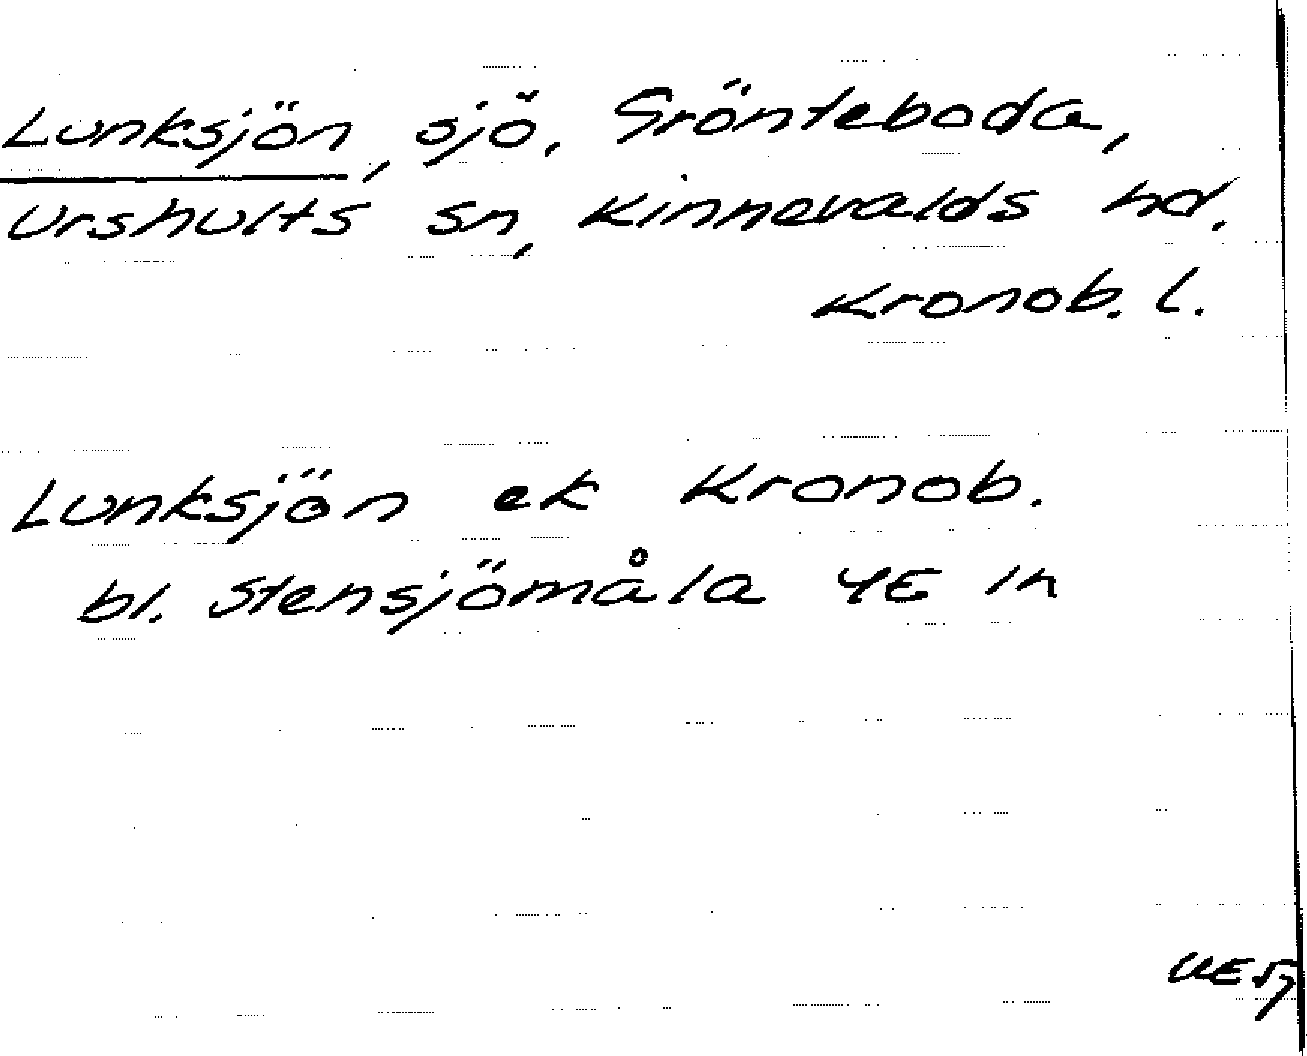 Lunksjön, sjö, Grönteboda,
Urshults sn, Kinnevalds hd.
Kronob. l.
Lunksjön ek Kronob.
bl. Stensjömåla 4E 1h